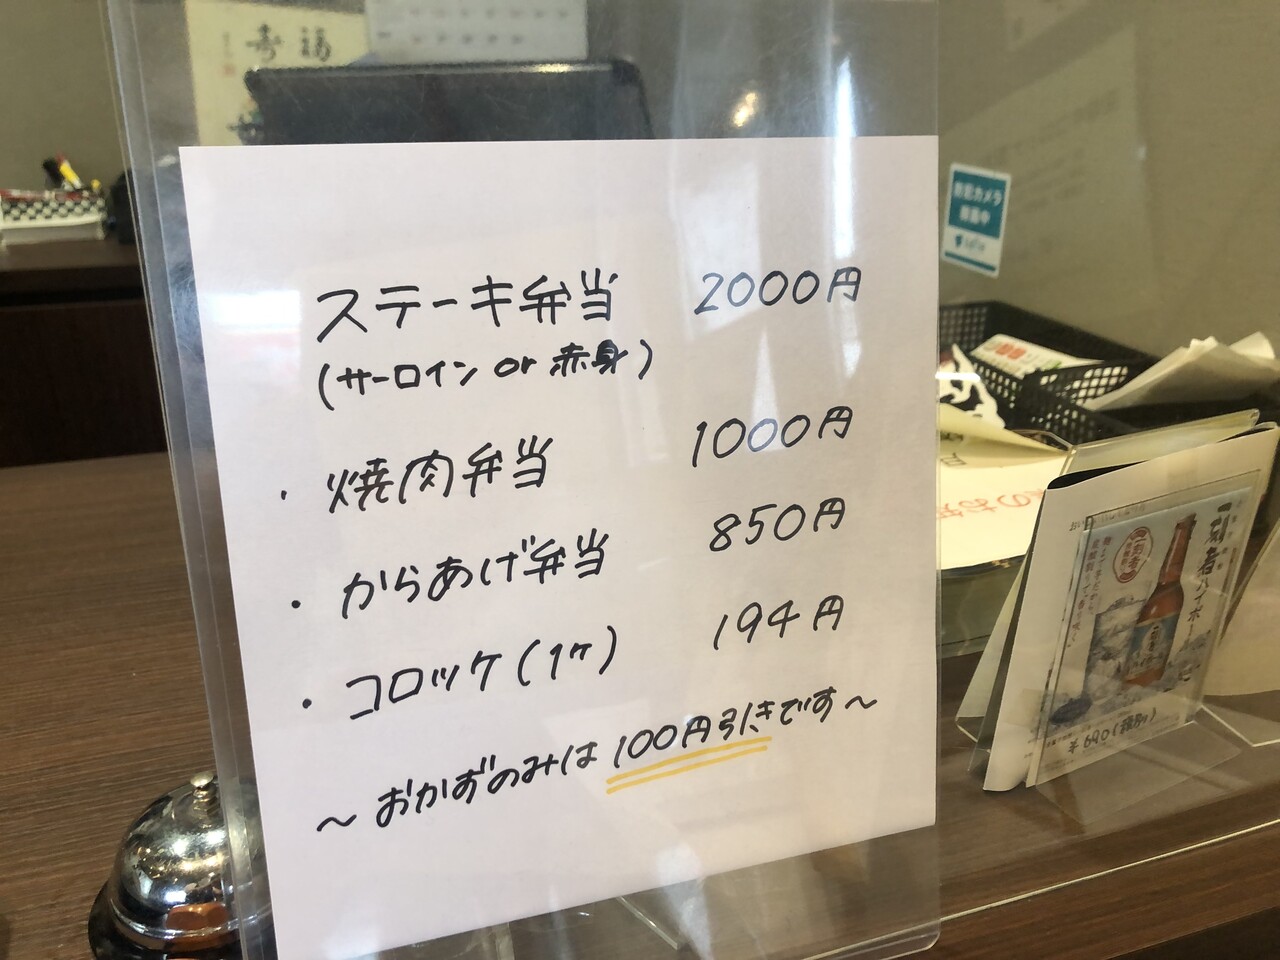 福
寿
ステーキ弁当 2000円
(サーロイン or 赤身)
・焼肉弁当 1000円
・からあげ弁当 850円
・コロッケ(1ヶ) 194円
～おかずのみは100円引きです～
防犯カメラ
一刻者ハイボール
¥690(税別)